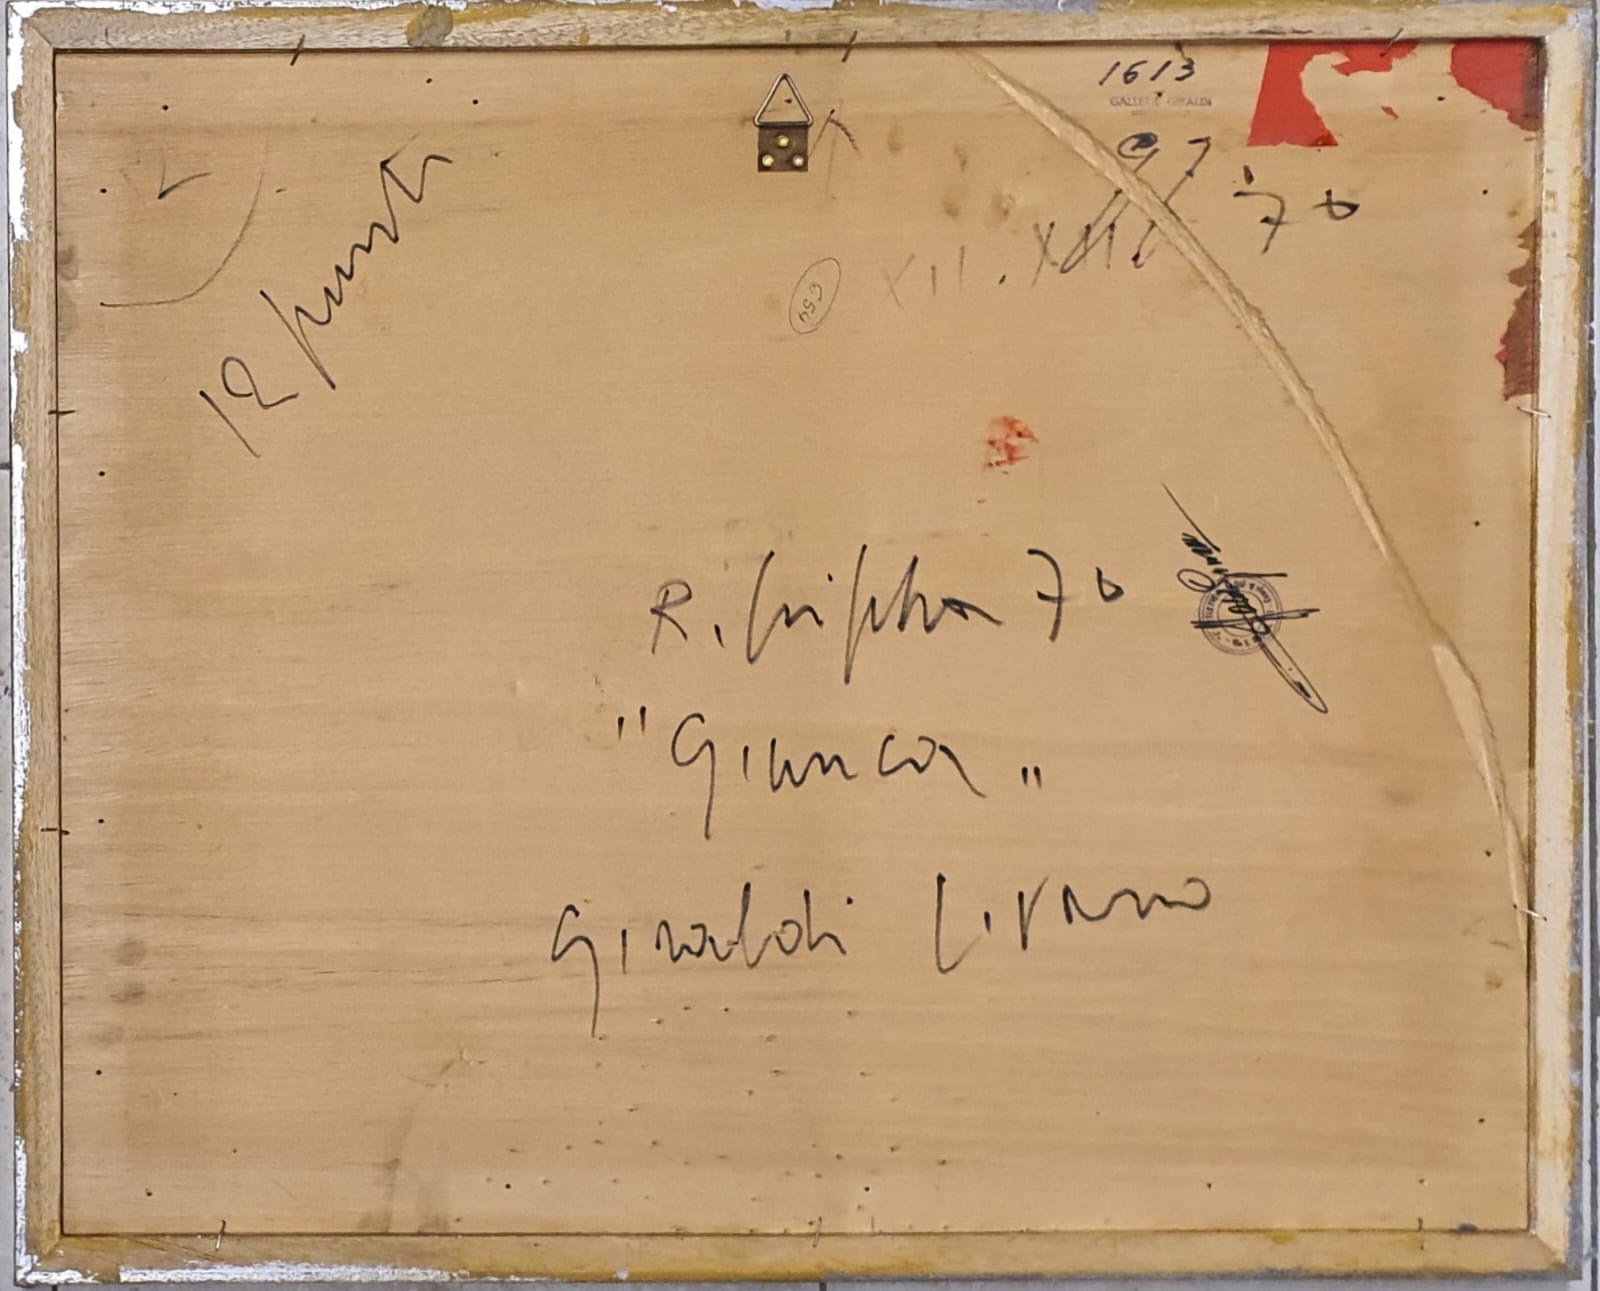 1613
GALLERIE GIRALDI
97
'70
XII. XIII
12 punti
654
R. Crippa 70
"Giunca"
Giraldi Livorno